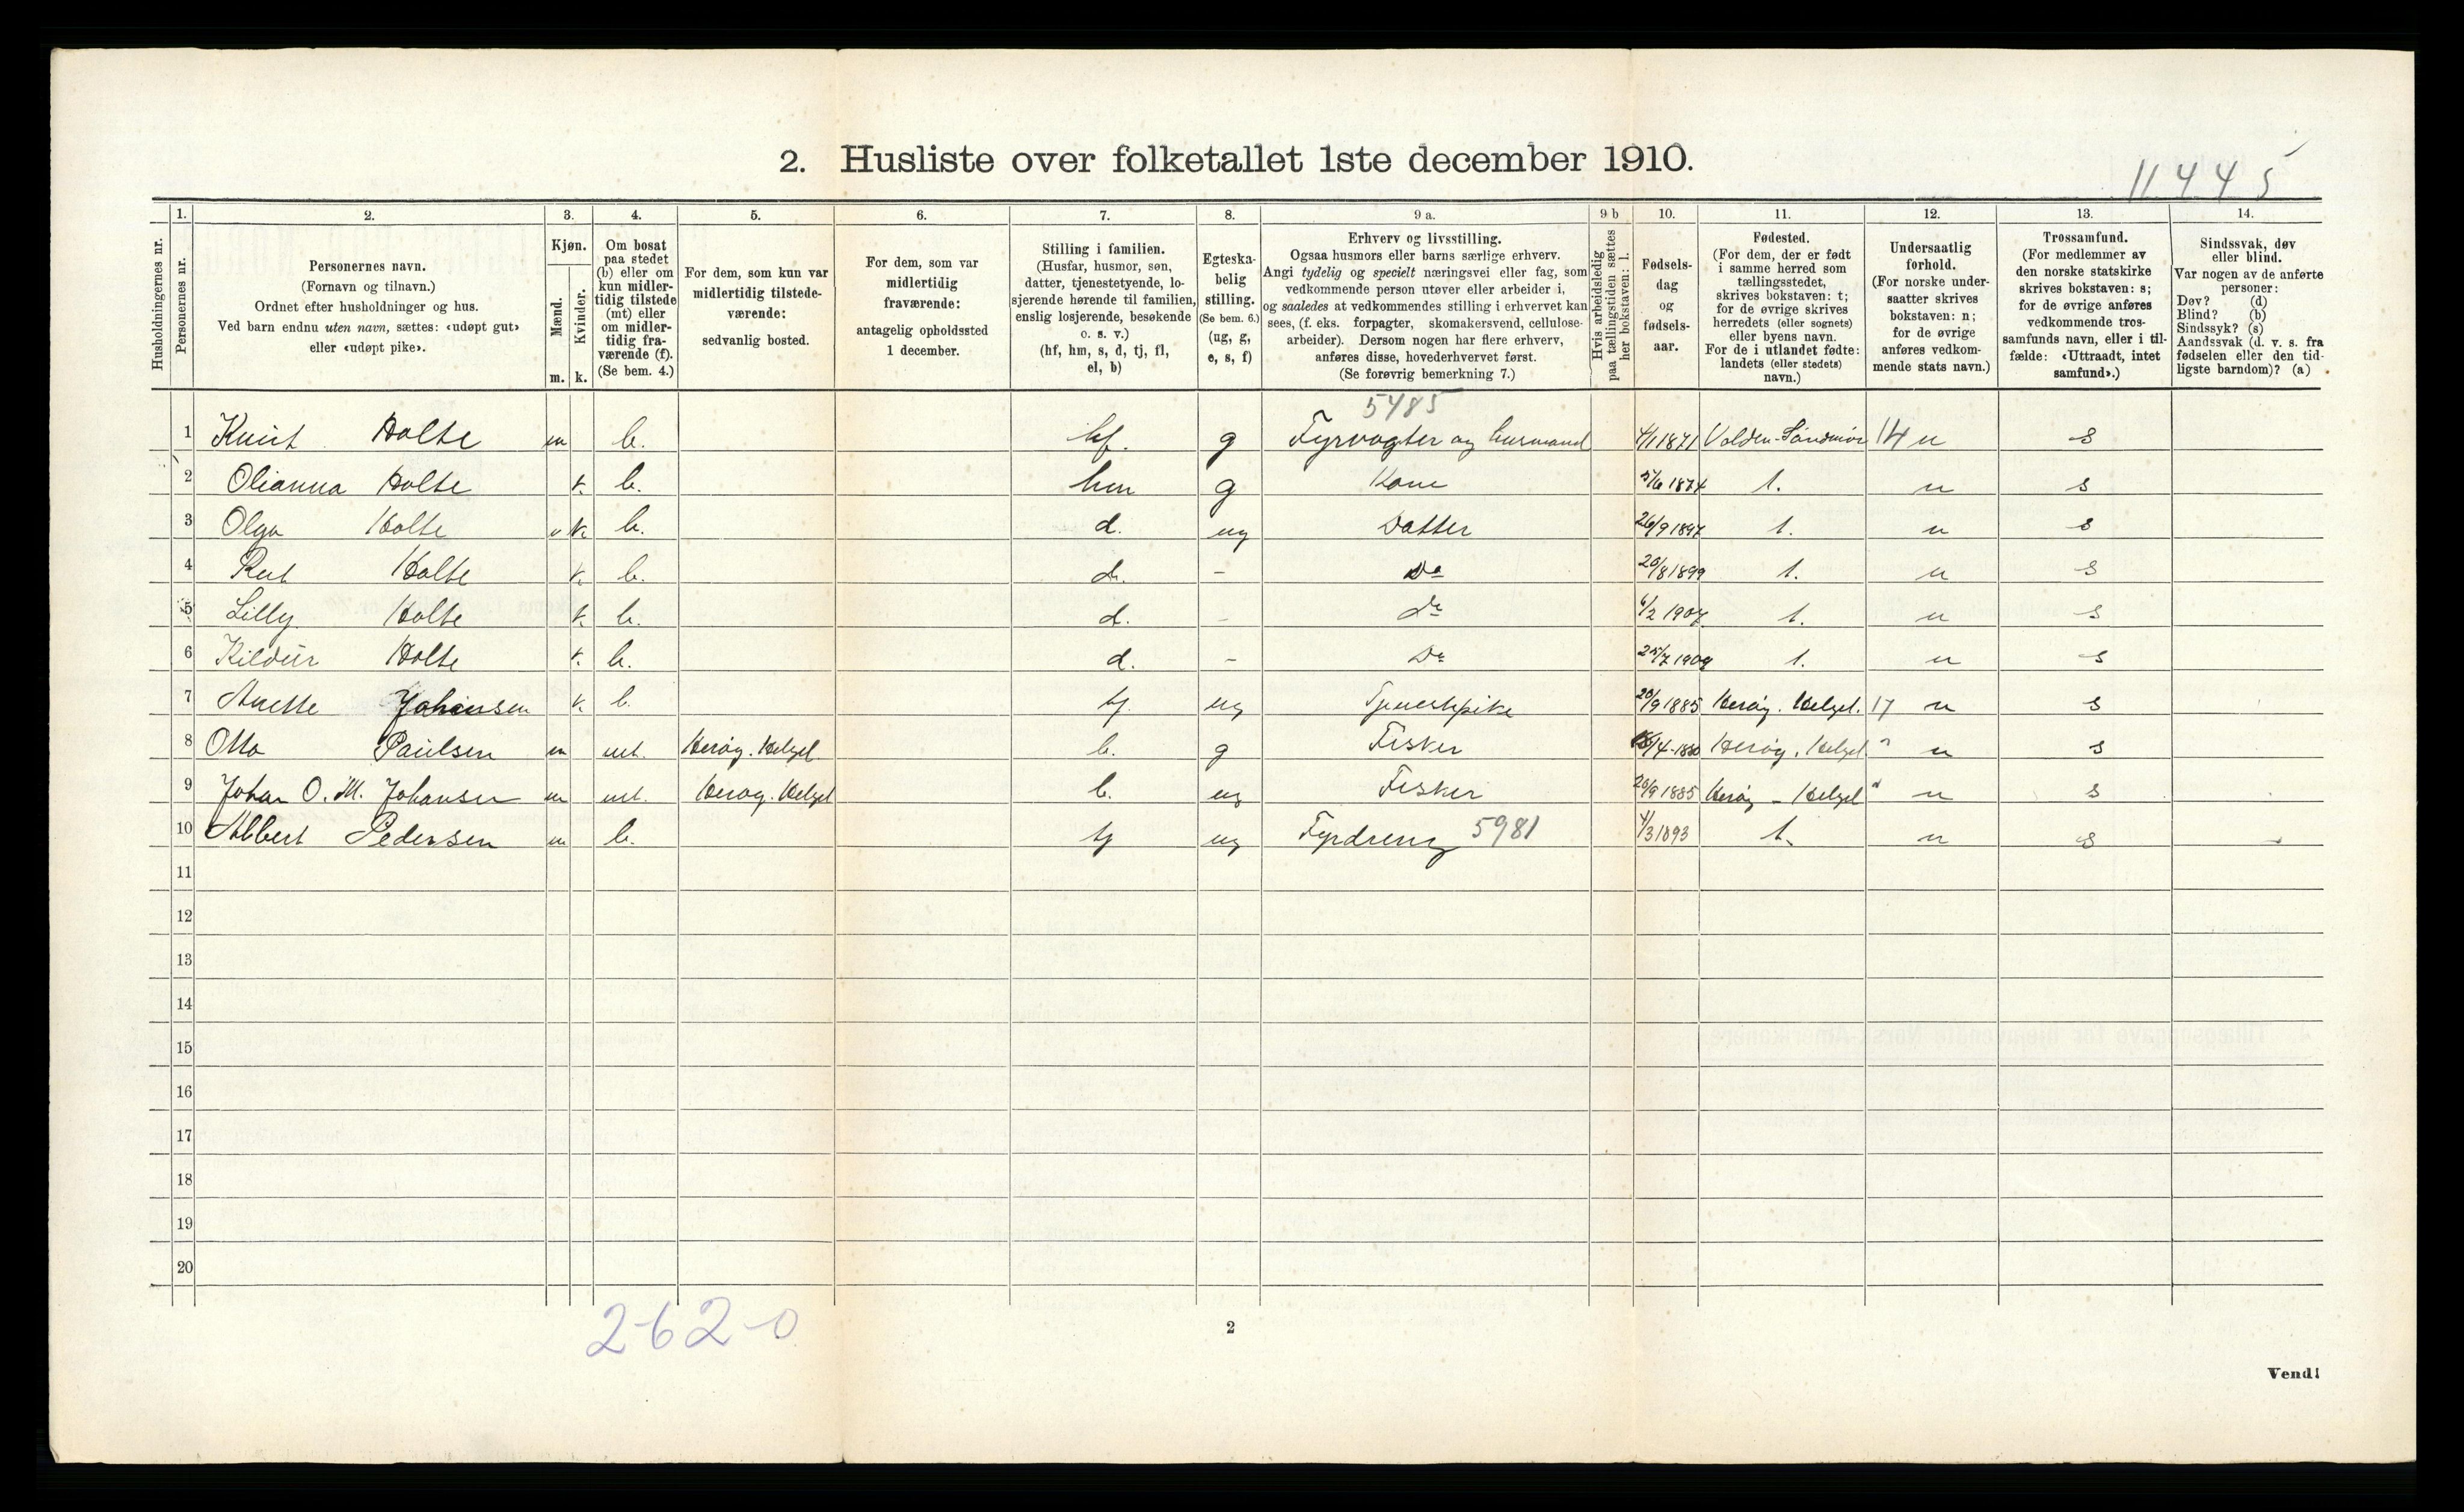 2. Husliste over folketallet 1ste december 1910.
11445
1. 2. 3. 4. 5. 6. 7. 8. 9 a. 9 b 10. 11. 12. 13. 14.
Husholdningernes nr.
Personernes nr.
Personernes navn.
(Fornavn og tilnavn.)
Ordnet efter husholdninger og hus.
Ved barn endnu uten navn, sættes: «udøpt gut»
eller «udøpt pike».
Kjøn.
Mænd.
Kvinder.
m. k.
Om bosat
paa stedet
(b) eller om
kun midler-
tidig tilstede
(mt) eller
om midler-
tidig fra-
værende (f).
(Se bem. 4.)
For dem, som kun var
midlertidig tilstede-
værende:
sedvanlig bosted.
For dem, som var
midlertidig
fraværende:
antagelig opholdssted
1 december.
Stilling i familien.
(Husfar, husmor, søn,
datter, tjenestetyende, lo-
sjerende hørende til familien,
enslig losjerende, besøkende
o. s. v.)
(hf, hm, s, d, tj, fl,
el, b)
Egteska-
belig
stilling.
(Se bem. 6.)
(ug, g,
e, s, f)
Erhverv og livsstilling.
Ogsaa husmors eller barns særlige erhverv.
Angi tydelig og specielt næringsvei eller fag, som
vedkommende person utøver eller arbeider i,
og saaledes at vedkommendes stilling i erhvervet kan
sees, (f. eks. forpagter, skomakersvend, cellulose-
arbeider). Dersom nogen har flere erhverv,
anføres disse, hovederhvervet først.
(Se forøvrig bemerkning 7.)
Hvis arbeidsledig
paa tællingstiden sættes
her bokstaven: l.
Fødsels-
dag
og
fødsels-
aar.
Fødested.
(For dem, der er født
i samme herred som
tællingsstedet,
skrives bokstaven: t;
for de øvrige skrives
herredets (eller sognets)
eller byens navn.
For de i utlandet fødte:
landets (eller stedets)
navn.)
Undersaatlig
forhold.
(For norske under-
saatter skrives
bokstaven: n;
for de øvrige
anføres vedkom-
mende stats navn.)
Trossamfund.
(For medlemmer av
den norske statskirke
skrives bokstaven: s;
for de øvrige anføres
vedkommende tros-
samfunds navn, eller i til-
fælde: «Uttraadt, intet
samfund».)
Sindssvak, døv
eller blind.
Var nogen av de anførte
personer:
Døv? (d)
Blind? (b)
Sindssyk? (s)
Aandssvak (d. v. s. fra
fødselen eller den tid-
ligste barndom)? (a)
5485
1 Knut Holte m b. hf. g Fyrvogter og husmand 4/1 1871 Volden-Søndmør 14 n s
2 Olianna Holte k. b. hm g Kone 1874 t. n s
3 Olga Holte k. b. d. ug Datter 26/9 1897 t. n s
4 Rut Holte k. b. d. - Do 20/8 1899 t. n s
5 Lilly Holte k. b. d. - do 6/2 1907 t. n s
6 Kildur Holte k. b. d. - Do 25/7 1909 t. n s
7 Anette Johansen k. b. tj. ug Tjenestepike 20/9 1885 Herøy. Helgel. 17 n s
8 Otto Paulsen m mt. Herøy. Helgel. b. g Fisker /4-1880 Herøy. Helgel. " n s
9 Johan O. M. Johansen m mt. Herøy. Helgel b. ug Fisker 20/9 1885 Herøy - Helgel " n s
10 Albert Pedersen m b. tj ug Fyrdreng 5981 4/3 1893 t. n s
11
12
13
14
15
16
17
18
19
20
2-6 2-0
2
Vend!